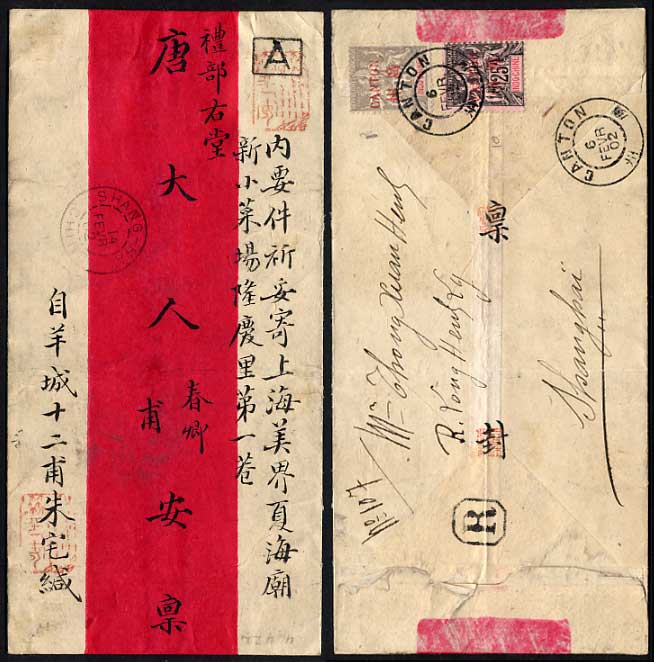 A
內要件祈妥寄上海美界頁海廟
新小菜場隆慶里第一巷
禮部右堂
唐大人
春卿
甫
安稟
自羊城十二甫朱宅緘
SHANG-HAI
14
FEVR
02
CANTON
6
FEVR
02
CANTON
INDOCHINE
25
CANTON
6
FEVR
02
稟
封
No. 107
Mr. Zhong Xuan Heng
R. Yong Heng Ly
Shanghai
R